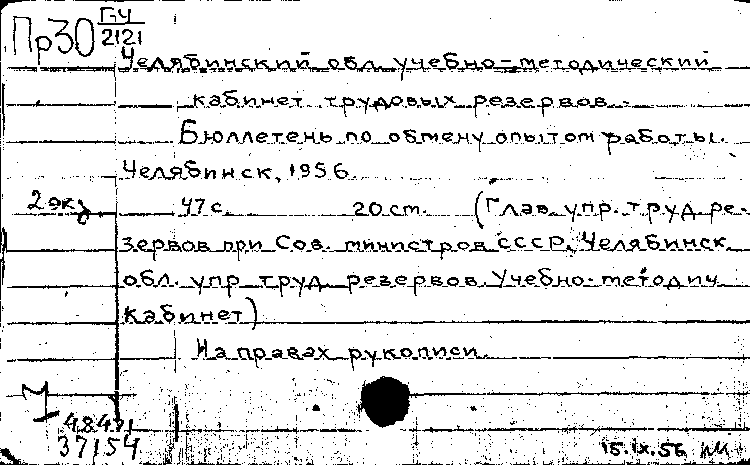 Пр30 ГУ
2121
Челябинский обл. учебно-методический
кабинет трудовых резервов.
Бюллетень по обмену опытом работы.
Челябинск, 1956.
2 экз 47 с. 20 cm. (Глав. упр. труд. ре-
зервов при Сов. министров СССР. Челябинск.
обл. упр. труд. резервов. Учебно-методич.
кабинет)
На правах рукописи.
37154
15.IX.56